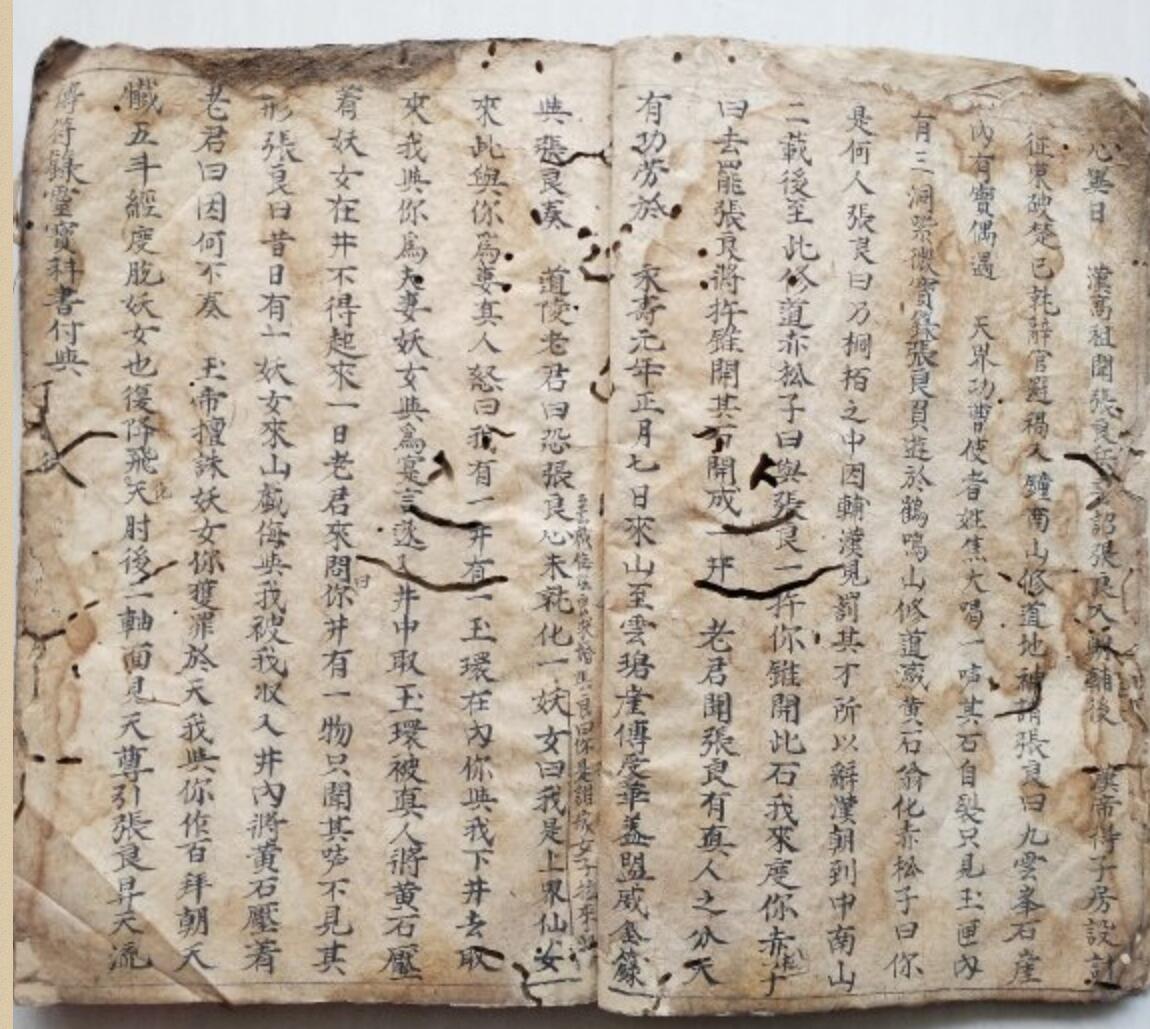 心異日 漢高祖聞張良 詔張良入朝輔後 漢帝得子房設計
征東破楚已乾辭官避禍入鐘南山修道地神謂張良曰九雲峯石崖
內有寶偶遇 天界功曹使者姓焦大喝一声其石自裂只見玉匣內
有三洞紫微寶籙張良員遊於鶴鳴山修道感黄石翁化赤松子曰你
是何人張良曰乃桐栢之中因輔漢見罰其才所以辭漢朝到中南山
二載後至此修道赤松子曰與張良一杵你錐開此石我來度你赤子
曰去罷張良將杵錐開其石開成一井 老君聞張良有真人之分天
有功勞於 家壽元年正月七日來山至雲瑙崖傳受華盖盟威金籙
與張良奏 道陵老君曰恐張良心未乾化一妖女曰我是上界仙女
來此與你爲妻真人怒曰我有一井有一玉環在內你與我下井去取
來我與你爲夫妻妖女與爲寔言遂入井中取玉環被真人將黄石壓
着妖女在井不得起來一日老君來問你井有一物只聞其声不見其
形張良曰昔日有一妖女來山戲侮與我被我収入井內將黄石壓着
老君曰因何不奏 玉帝擅誅妖女你獲罪於天我與你作百拜朝天
懺五斗經度脫妖女也復降飛天肘後二軸面見天尊引張良昇天流
傳符籙靈寶科書付與